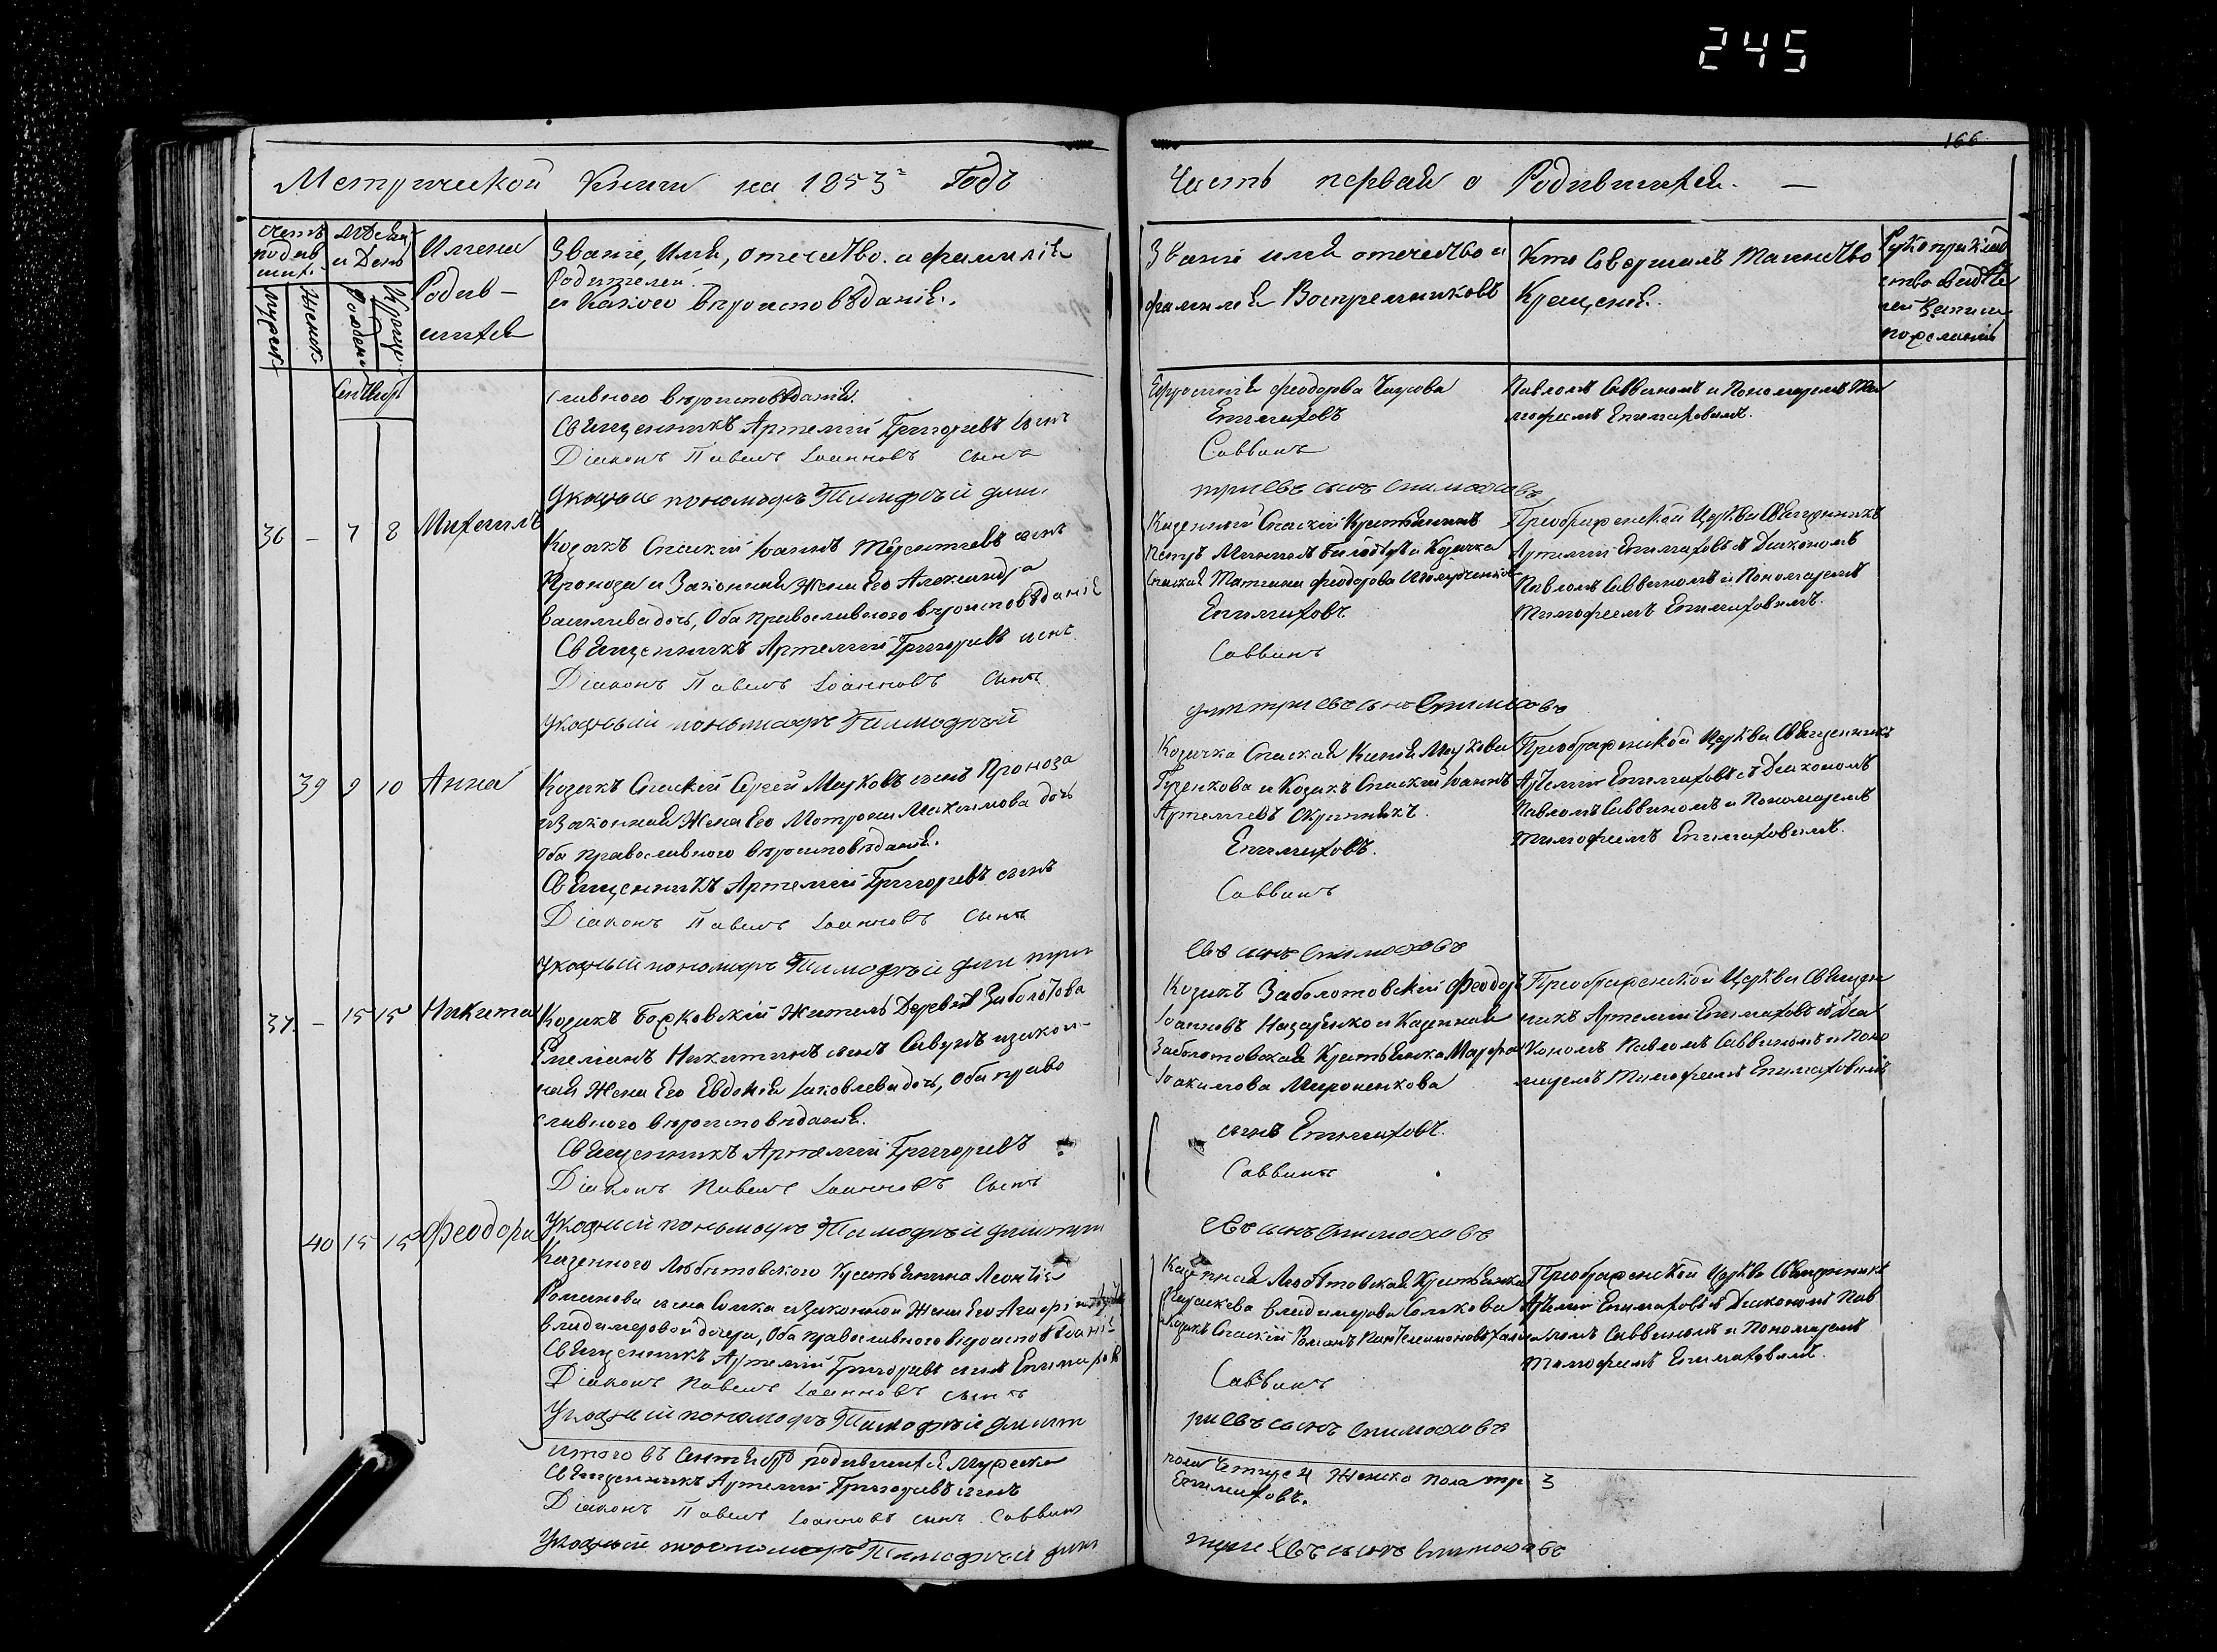 245
166
Метрической Книги на 1853й Годъ
Часть первая о Родившихся. —
Счетъ родив шихся
Мѣсяцъ и День
Имена Родив- шихся
Званіе, Имя, отечество. и фамилія
Родителей.
и Какого вѣроисповѣданія.
Мужск.
Женск.
Рожденія
Крещен.
Званіе имя отечество и
фамилія Воспреемниковъ
Кто Совершалъ Таинство
Крещенія.
Рукоприклад
ство Свидѣте
лей Записи
по желанію
Сентябрь
славного вѣроисповѣданія.
Священникъ Артемій Григорьевъ сынъ
Діаконъ Павелъ Іоанновъ сынъ
Указный пономарь Тимофѣй дми
Ефросинія Феодорова
Епимаховъ
Саввинъ
тріевъ сынъ Епимаховъ
Павломъ Саввиномъ и Пономаремъ Ти
мофеемъ Епимаховымъ.
36 — 7 8 Михаилъ
Козакъ Спаскій Іоаннъ Терентіевъ сынъ
Проноза и Законная Жена Его Александра
Василіева дочь, Оба православного вѣроисповѣданія
Священникъ Артемій Григорьевъ сынъ
Діаконъ Павелъ Іоанновъ Сынъ
Указный пономарь Тимофѣй
Казенный Спаскій Крестьянинъ
Петръ и Козачка
Спаская Татіана Феодорова
Епимаховъ
Саввинъ
дмитріевъ сынъ Епимаховъ
Преображенской Церкви Священникъ
Артемій Епимаховъ съ Діакономъ
Павломъ Саввиномъ и Пономаремъ
Тимофеемъ Епимаховымъ.
39 9 10 Анна
Козакъ Спаскій Сергей Марковъ сынъ Проноза
и Законная Жена Его Матрона Максимова дочь
Оба православного вѣроисповѣданія.
Священникъ Артемій Григорьевъ сынъ
Діаконъ Павелъ Іоанновъ Сынъ
Указный пономарь Тимофѣй дми три
Козачка Спаская Маркова
и Козакъ Спаскій Іоаннъ
Артемьевъ
Епимаховъ.
Саввинъ
евъ сынъ Епимаховъ
Преображенской Церкви Священникъ
Артемій Епимаховъ съ Діакономъ
Павломъ Саввиномъ и Пономаремъ
Тимофеемъ Епимаховымъ.
37. — 15 15 Никита
Козакъ Житель Деревни Заболотова
Емеліанъ Никитинъ сынъ Савунъ и закон-
ная Жена Его Евдокія Іаковлева дочь, Оба право
славного вѣроисповѣданія.
Священникъ Артемій Григорьевъ
Діаконъ Павелъ Іоанновъ Сынъ
Указный пономарь Тимофѣй дмитри
Козакъ Заболотовскій Феодоръ
Іоанновъ Назаренко и Казенная
Заболотовская Крестьянка Марфа
Іоакимова Мироненкова
сынъ Епимаховъ.
Саввинъ
евъ сынъ Епимаховъ
Преображенской Церкви Священ
никъ Артемій Епимаховъ съ Діа
кономъ Павломъ Саввиномъ и Поно
маремъ Тимофеемъ Епимаховымъ
40 15 15 Феодора
Казенного Любитовского Крестьянина Леонтія
Романова сына Сомка и законной Жены Его
Владимеровой дочери, Оба православного вѣроисповѣданія
Священникъ Артемій Григорьевъ сынъ Епимаховъ
Діаконъ Павелъ Іоанновъ сынъ
Указный пономарь Тимофѣй дмит
Казенная Любитовская Крестьянка
Параскева Владимерова Сомкова
и Козакъ Спаскій Романъ Пантелеимоновъ
Саввинъ
ріевъ сынъ Епимаховъ
Преображенской Церкви Священникъ
Артемій Епимаховъ съ Діакономъ Пав
ломъ Саввиномъ и Пономаремъ
Тимофеемъ Епимаховымъ.
итого въ Сентябрѣ родившихся Мужска
Священникъ Артемій Григорьевъ сынъ
Діаконъ Павелъ Іоанновъ сынъ Саввинъ
Указный пономарь Тимофѣй дми
пола Четыре 4 Женска пола три 3
Епимаховъ.
тріевъ сынъ Епимаховъ